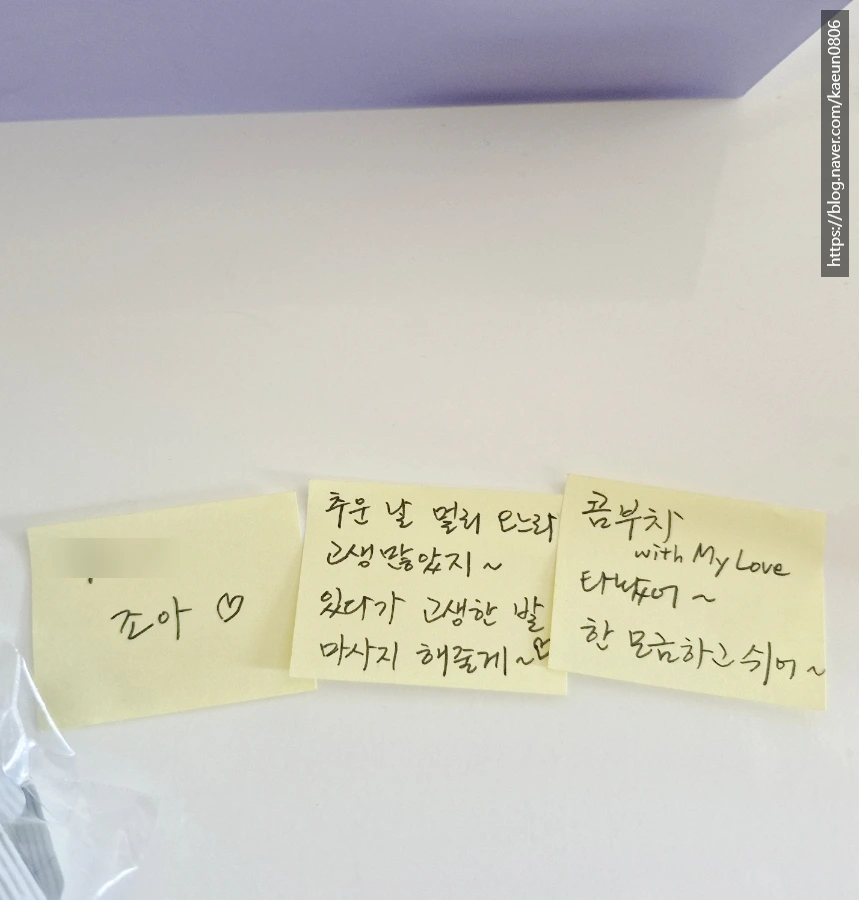 조아 ♡
추운 날 멀리 오느라
고생 많았지~
있다가 고생한 발
마사지 해줄게~♡
콤부차
with My Love
타놨어~
한 모금하고 쉬어~
https://blog.naver.com/kaeun0806